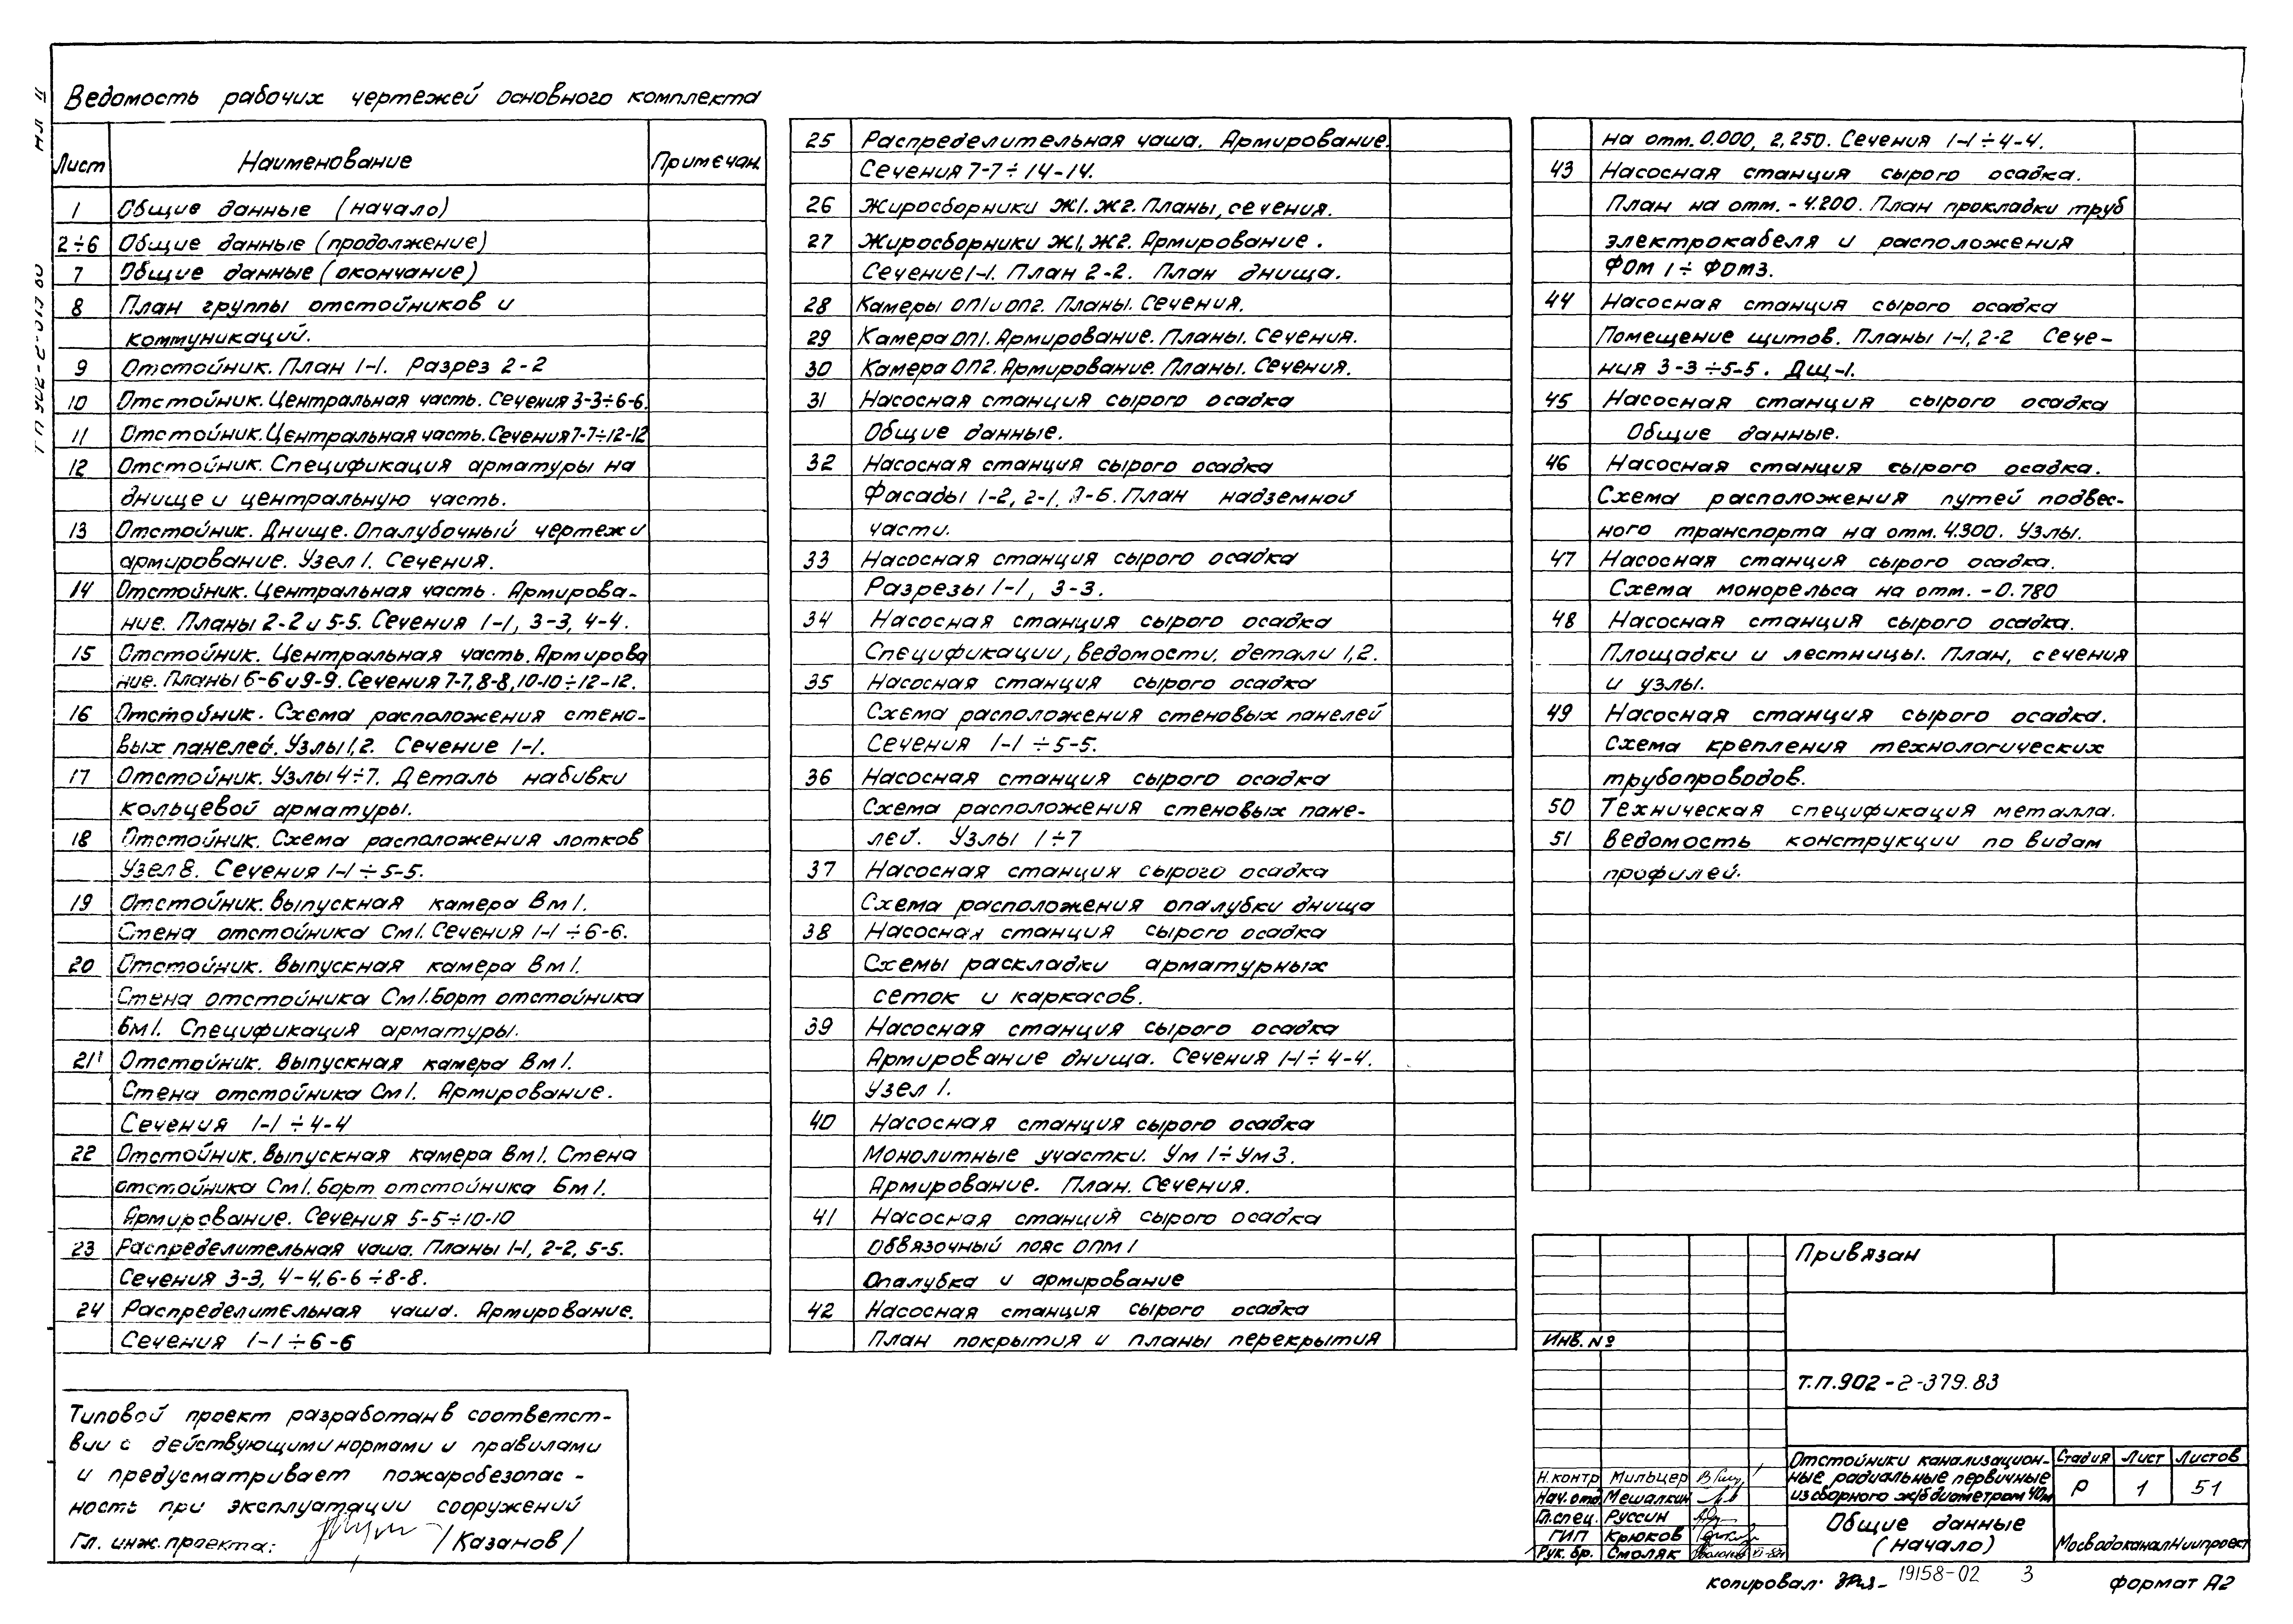 Ведомость рабочих чертежей основного комплекта
Лист Наименование Примечан.
1 Общие данные (начало)
2÷6 Общие данные (продолжение)
7 Общие данные (окончание)
8 План группы отстойников и
коммуникаций.
9 Отстойник. План 1-1. Разрез 2-2
10 Отстойник. Центральная часть. Сечения 3-3÷6-6.
11 Отстойник. Центральная часть. Сечения 7-7÷12-12
12 Отстойник. Спецификация арматуры на
днище и центральную часть.
13 Отстойник. Днище. Опалубочный чертеж и
армирование. Узел 1. Сечения.
14 Отстойник. Центральная часть. Армирова-
ние. Планы 2-2 и 5-5. Сечения 1-1, 3-3, 4-4.
15 Отстойник. Центральная часть. Армирова
ние. Планы 6-6 и 9-9. Сечения 7-7, 8-8, 10-10÷12-12.
16 Отстойник. Схема расположения стено-
вых панелей. Узлы 1,2. Сечение 1-1.
17 Отстойник. Узлы 4÷7. Деталь набивки
кольцевой арматуры.
18 Отстойник. Схема расположения лотков
Узел 8. Сечения 1-1÷5-5.
19 Отстойник. Выпускная камера Вм1.
Стена отстойника См1. Сечения 1-1÷6-6.
20 Отстойник. Выпускная камера Вм1.
Стена отстойника См1. Борт отстойника
Бм1. Спецификация арматуры.
21 Отстойник. Выпускная камера Вм1.
Стена отстойника См1. Армирование.
Сечения 1-1÷4-4
22 Отстойник. Выпускная камера Вм1. Стена
отстойника См1. Борт отстойника Бм1.
Армирование. Сечения 5-5÷10-10
23 Распределительная чаша. Планы 1-1, 2-2, 5-5.
Сечения 3-3, 4-4, 6-6÷8-8.
24 Распределительная чаша. Армирование.
Сечения 1-1÷6-6
25 Распределительная чаша. Армирование.
Сечения 7-7÷14-14.
26 Жиросборники Ж1. Ж2. Планы, сечения.
27 Жиросборники Ж1, Ж2. Армирование.
Сечение 1-1. План 2-2. План днища.
28 Камеры ОП1 и ОП2. Планы. Сечения.
29 Камера ОП1. Армирование. Планы. Сечения.
30 Камера ОП2. Армирование. Планы. Сечения.
31 Насосная станция сырого осадка
Общие данные.
32 Насосная станция сырого осадка
Фасады 1-2, 2-1, А-Б. План надземной
части.
33 Насосная станция сырого осадка
Разрезы 1-1, 3-3.
34 Насосная станция сырого осадка
Спецификации, ведомости, детали 1,2.
35 Насосная станция сырого осадка
Схема расположения стеновых панелей
Сечения 1-1÷5-5.
36 Насосная станция сырого осадка
Схема расположения стеновых пане-
лей. Узлы 1÷7
37 Насосная станция сырого осадка
Схема расположения опалубки днища
38 Насосная станция сырого осадка
Схемы раскладки арматурных
сеток и каркасов.
39 Насосная станция сырого осадка
Армирование днища. Сечения 1-1÷4-4.
Узел 1.
40 Насосная станция сырого осадка
Монолитные участки. Ум1÷Ум3.
Армирование. План. Сечения.
41 Насосная станция сырого осадка
Обвязочный пояс ОПМ1
Опалубка и армирование
42 Насосная станция сырого осадка
План покрытия и планы перекрытия
на отм. 0.000, 2,250. Сечения 1-1÷4-4.
43 Насосная станция сырого осадка.
План на отм. -4.200. План прокладки труб
электрокабеля и расположения
ФОМ 1÷ФОМ3.
44 Насосная станция сырого осадка
Помещение щитов. Планы 1-1, 2-2 Сече-
ния 3-3÷5-5. Дщ-1.
45 Насосная станция сырого осадка
Общие данные.
46 Насосная станция сырого осадка.
Схема расположения путей подвес-
ного транспорта на отм. 4.300. Узлы.
47 Насосная станция сырого осадка.
Схема монорельса на отм. -0.780
48 Насосная станция сырого осадка.
Площадки и лестницы. План, сечения
и узлы.
49 Насосная станция сырого осадка.
Схема крепления технологических
трубопроводов.
50 Техническая спецификация металла.
51 Ведомость конструкции по видам
профилей.
Типовой проект разработан в соответст-
вии с действующими нормами и правилами
и предусматривает пожаробезопас-
ность при эксплуатации сооружений
Гл. инж. проекта: /Казанов/
Привязан
Инв. №
Т.П. 902-2-379.83
Н.контр Мильцер
Нач.отд. Мешалкин
Гл.спец. Руссин
ГИП Крюков
Рук. бр. Смоляк
Отстойники канализацион-
ные радиальные первичные
из сборного ж/б диаметром 40м
Стадия Лист Листов
Р 1 51
Общие данные
(начало)
МосводоканалНиипроект
копировал: 19158-02 3 формат А2